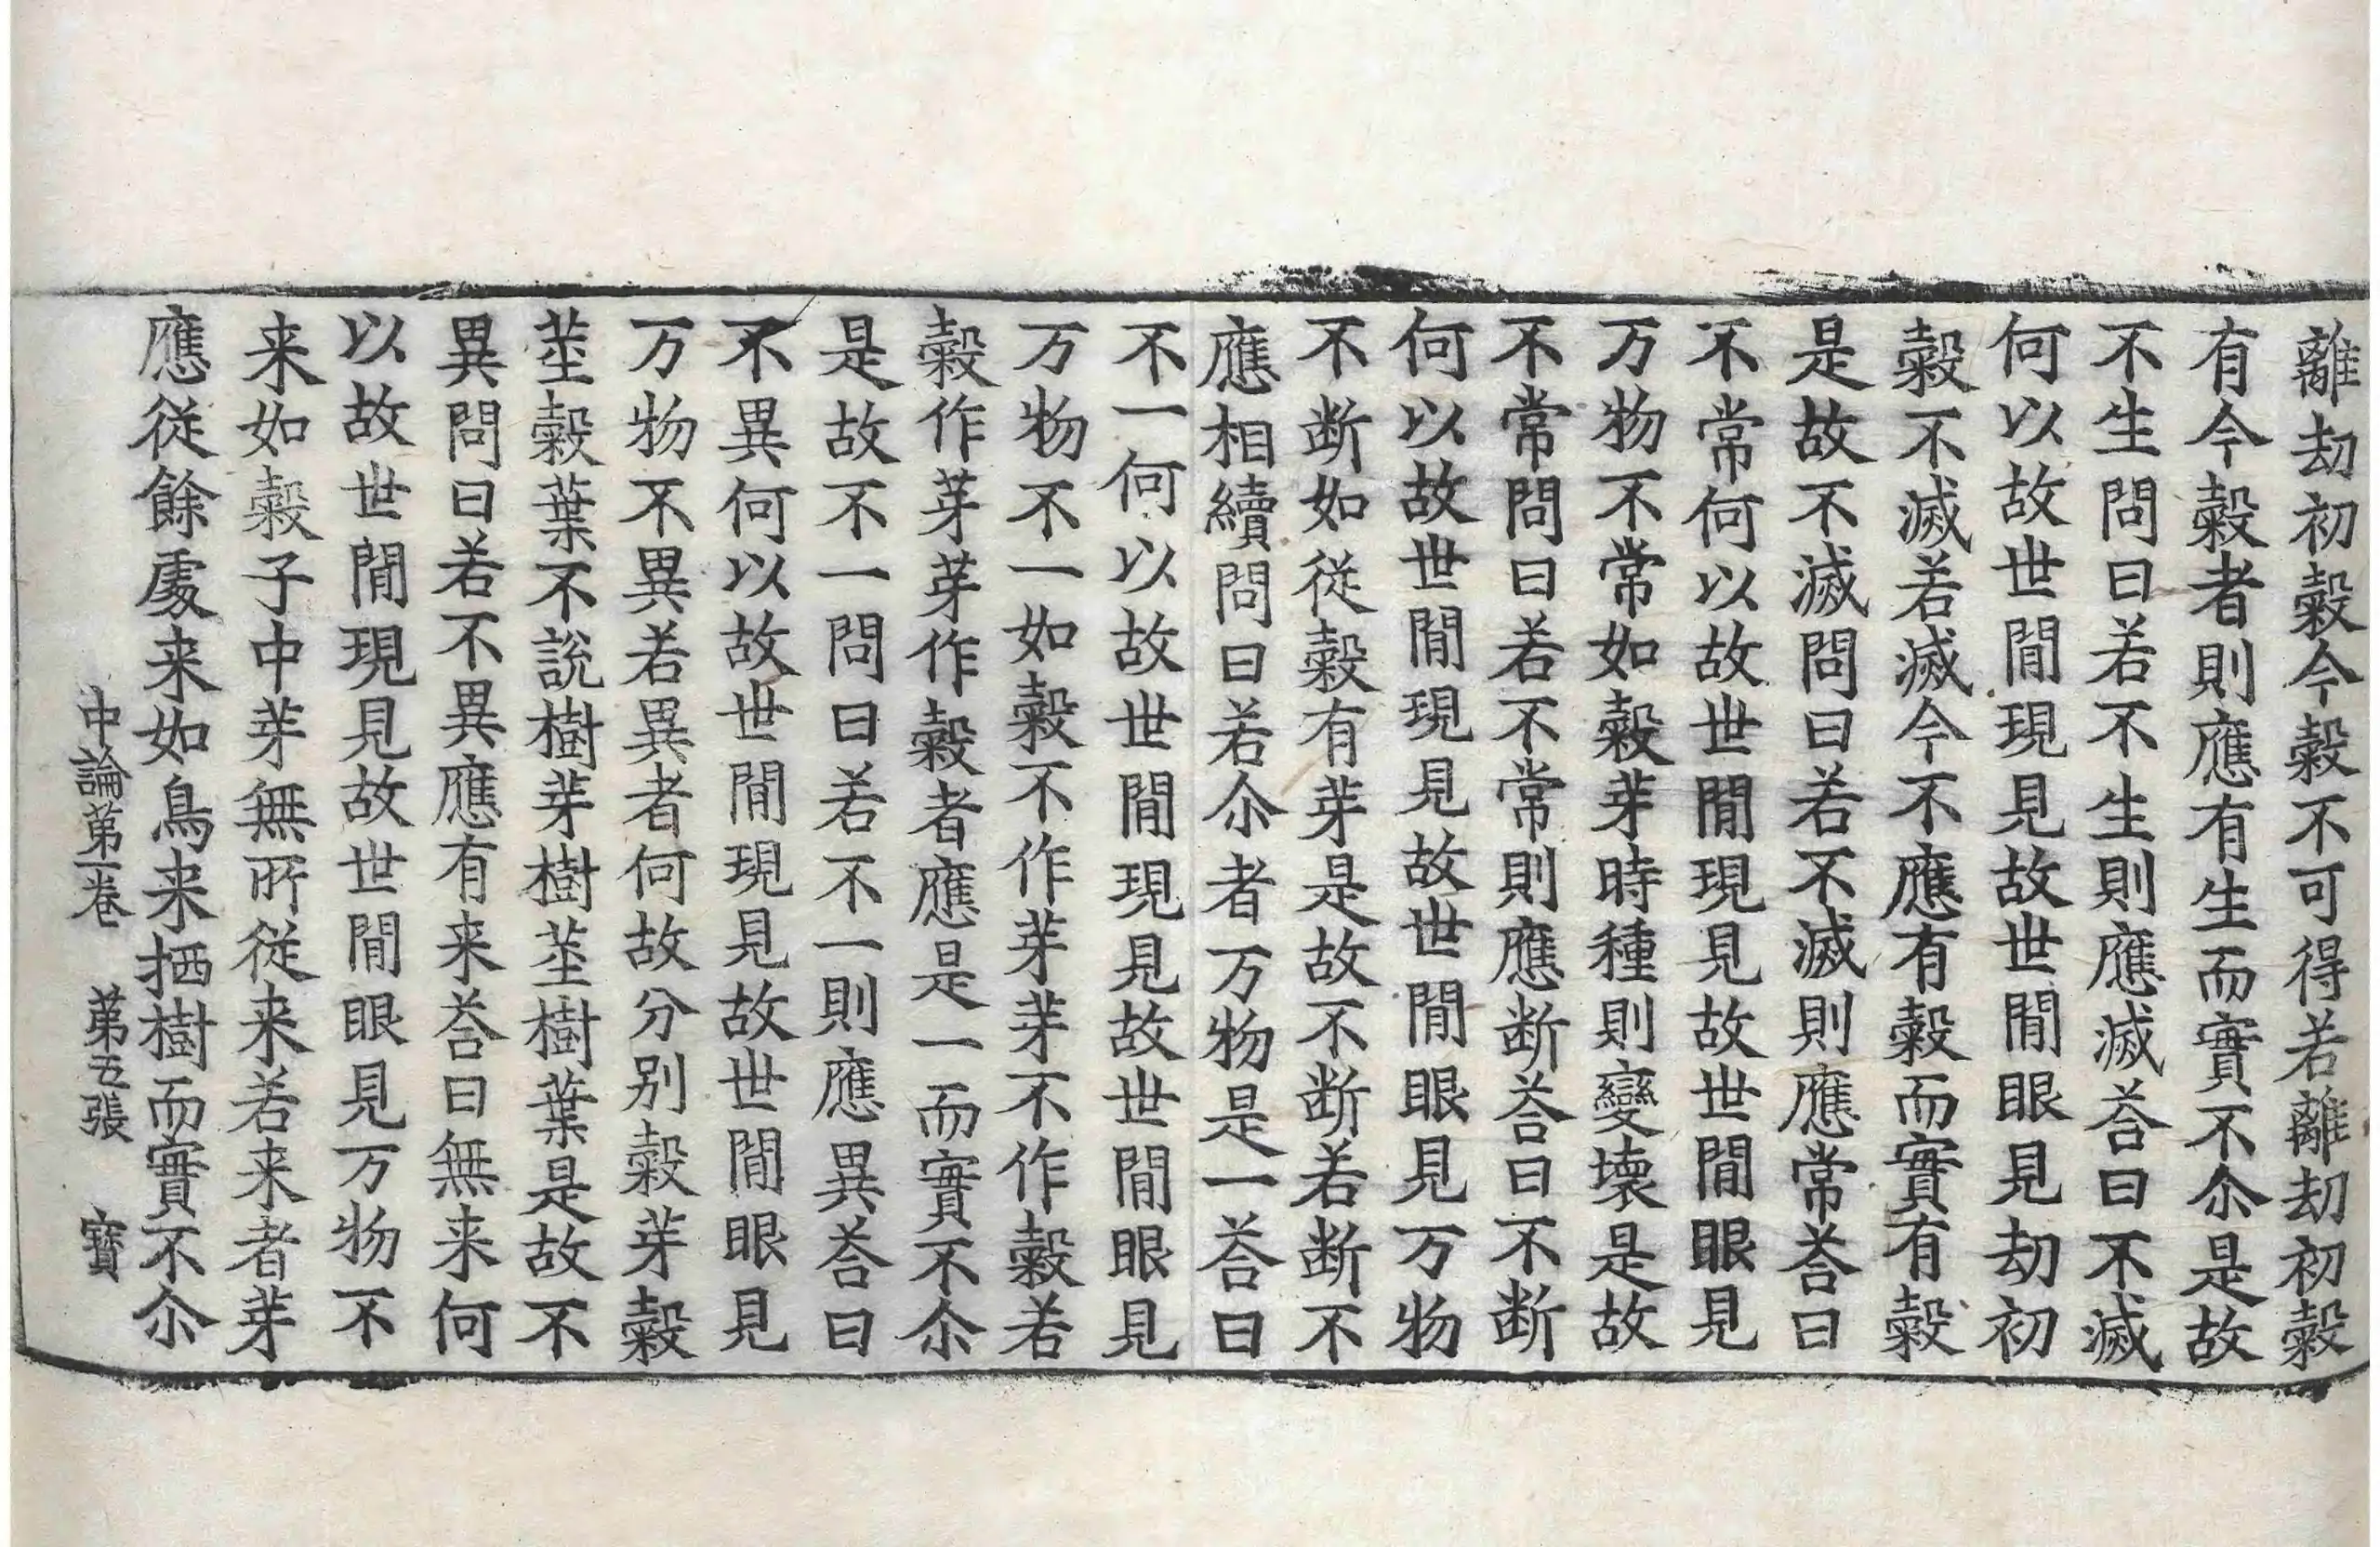 離劫初糓今糓不可得若離劫初糓
有今糓者則應有生而實不尒是故
不生問曰若不生則應滅荅曰不滅
何以故世間現見故世間眼見劫初
糓不滅若滅今不應有糓而實有糓
是故不滅問曰若不滅則應常荅曰
不常何以故世間現見故世間眼見
万物不常如糓芽時種則變壞是故
不常問曰若不常則應断荅曰不断
何以故世間現見故世間眼見万物
不断如從糓有芽是故不断若断不
應相續問曰若尒者万物是一荅曰
不一何以故世間現見故世間眼見
万物不一如糓不作芽芽不作糓若
糓作芽芽作糓者應是一而實不尒
是故不一問曰若不一則應異荅曰
不異何以故世間現見故世間眼見
万物不異若異者何故分別糓芽糓
莖糓葉不說樹芽樹莖樹葉是故不
異問曰若不異應有来荅曰無来何
以故世間現見故世間眼見万物不
来如糓子中芽無所從来若来者芽
應從餘處来如鳥来栖樹而實不尒
中論第一卷 第五張 寳